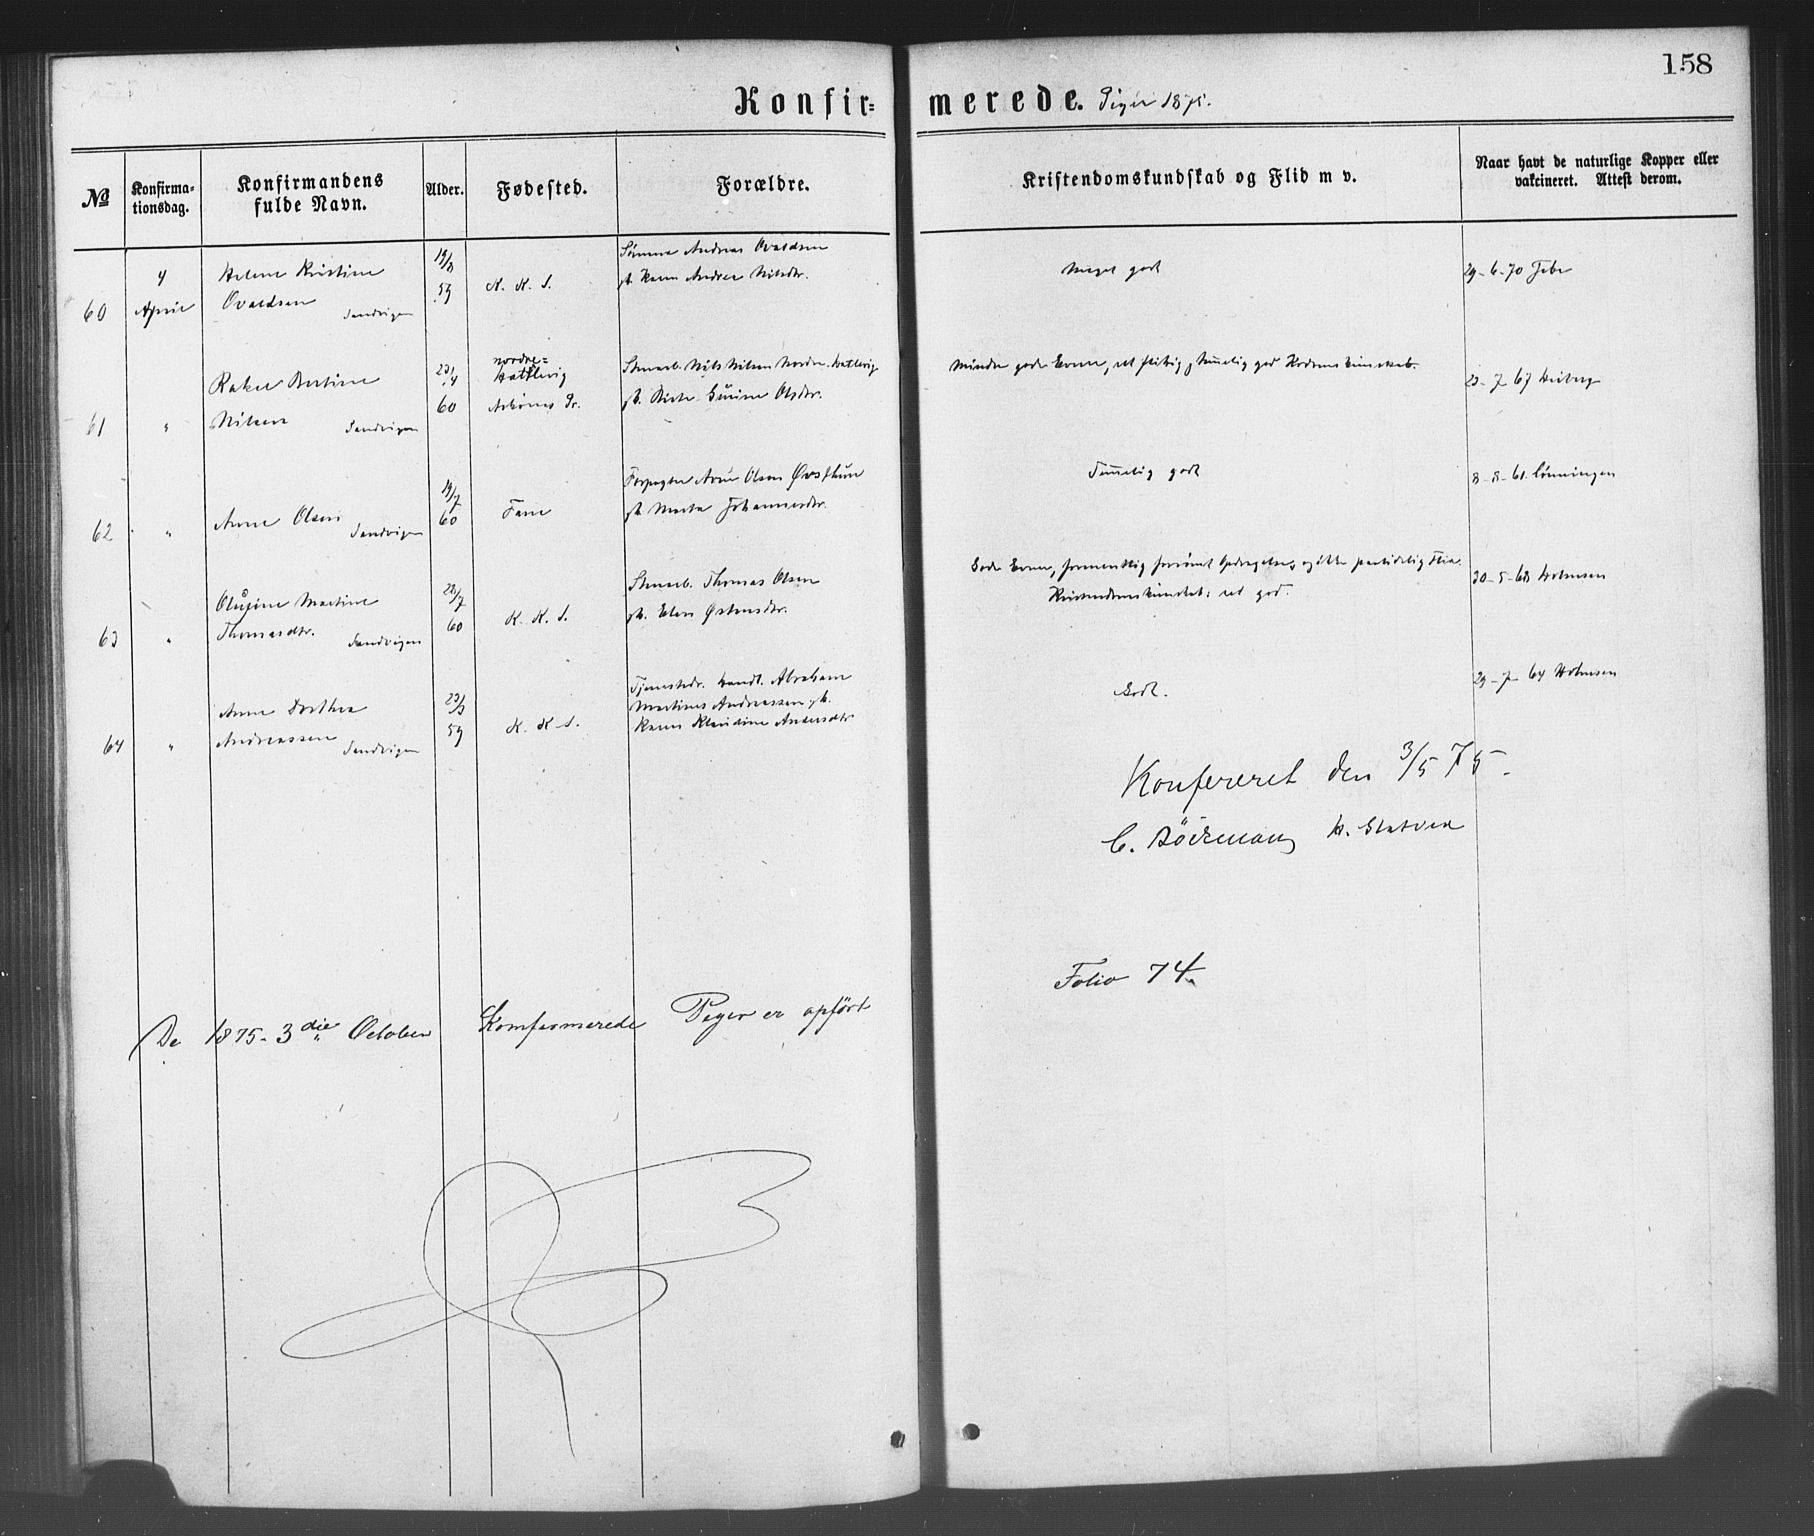 158
Konfir= merede. Piger 1875.
№
Konfirma-
tionsdag.
Konfirmandens
fulde Navn.
Alder.
Fødested.
Forældre.
Kristendomskundskab og Flid m v.
Naar havt de naturlige Kopper eller
vakcineret. Attest derom.
60
4
April
Helene Kristine
Ovaldsen Sandvigen
19/8
59
K. K. S.
Sømand Andreas Ovaldsen
Karen Andrea Nilsdtr.
Meget godt
29-6-70
61
"
Rakel Bertine
Nilsen Sandvigen
23/4
60
Nordre=
Hatlevig
Askøens Pr.
Nils Nilsen Nordre Hatlevig
Gurine Olsdtr.
Mindre gode Evner, ret flittig, temmelig god Kristendomskundskab.
23-7-67 Heiberg
62
"
Anne Olsen Sandvigen
19/7
60
Fane
Forpagter Arne Olsen Øvsthun
Marta Johannesdtr.
Temmelig godt
8-8-61 Lønningen
63
"
Olugine Martine
Thomasdtr. Sandvigen
22/7
60
K. K. S.
Thomas Olsen
Elen Østensdtr.
Gode Evner,
Kristendomskundskab: ret god.
30-5-68 Holmsen
64
"
Anne Dorthea
Andreassen Sandvigen
23/3
59
K. K. S.
Handl. Abraham
Martinus Andreassen
Karen Klaudine Andersdtr
Godt.
29-7-64 Holmsen
Konfereret den 3/5 75.
C. Böckmann
De 1875- 3die October Komfermerede Peger er opført
Folio 74.